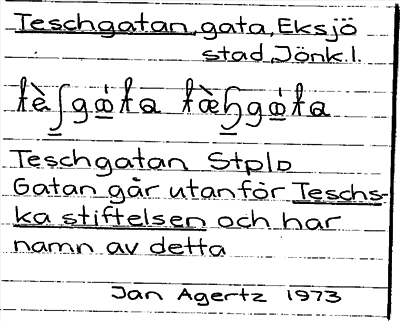 Teschgatan, gata, Eksjö
stad, Jönk.l.
Teschgatan StplD
Gatan går utanför Teschs-
ka stiftelsen och har
namn av detta
Jan Agertz 1973